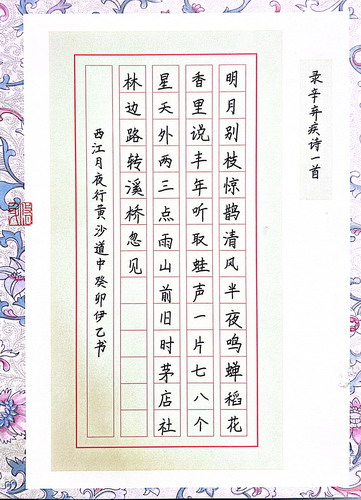 录辛弃疾诗一首
明月别枝惊鹊清风半夜鸣蝉稻花
香里说丰年听取蛙声一片七八个
星天外两三点雨山前旧时茅店社
林边路转溪桥忽见
西江月夜行黄沙道中癸卯伊乙书